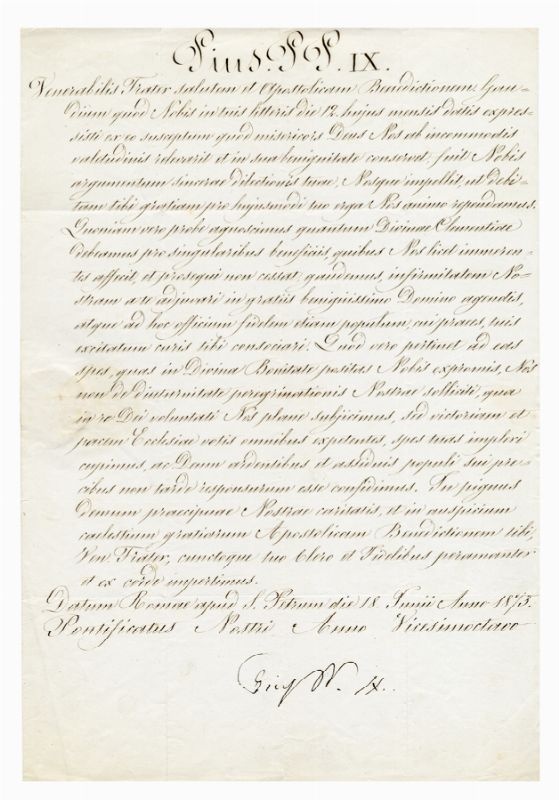 Pius. P.P. IX.
Venerabilis Frater salutem et Apostolicam Benedictionem. Gau-
dium quod Nobis in tuis litteris die 12 hujus mensis datis expres-
sisti ex eo susceptum quod misericors Deus Nos ab incommodis
valetudinis relevarit et in sua benignitate conservat, fuit Nobis
argumentum sincerae dilectionis tuae, Nosque impellit, ut debi-
tam tibi gratiam pro hujusmodi tuo erga Nos animo rependamus.
Quoniam vero probe agnoscimus quantum Divinae Clementiae
debeamus pro singularibus beneficiis, quibus Nos licet immeren-
tes affecit, et prosequi non cessat, gaudemus, infirmitatem No-
stram a te adjuvari in gratiis benignissimo Domino agendis,
atque ad hoc officium fidelem etiam populum, cui praees, tuis
excitatum curis tibi consociari. Quod vero pertinet ad eas
spes, quas in Divina Bonitate positas Nobis expromis, Nos
non de diuturnitate peregrinationis Nostrae solliciti, qua
in re Dei voluntati Nos plane subjicimus, sed victoriam et
pacem Ecclesiae votis omnibus expetentes, spes tuas impleri
cupimus, ac Deum ardentibus et assiduis populi sui pre-
cibus non tarde responsurum esse confidimus. In pignus
demum praecipuae Nostrae caritatis, et in auspicium
caelestium gratiarum Apostolicam Benedictionem tibi,
Ven. Frater, cunctoque tuo Clero et Fidelibus peramanter
et ex corde impertimus.
Datum Romae apud S. Petrum die 18 Junii Anno 1873.
Pontificatus Nostri Anno Vicesimoctavo
Pius PP. IX.